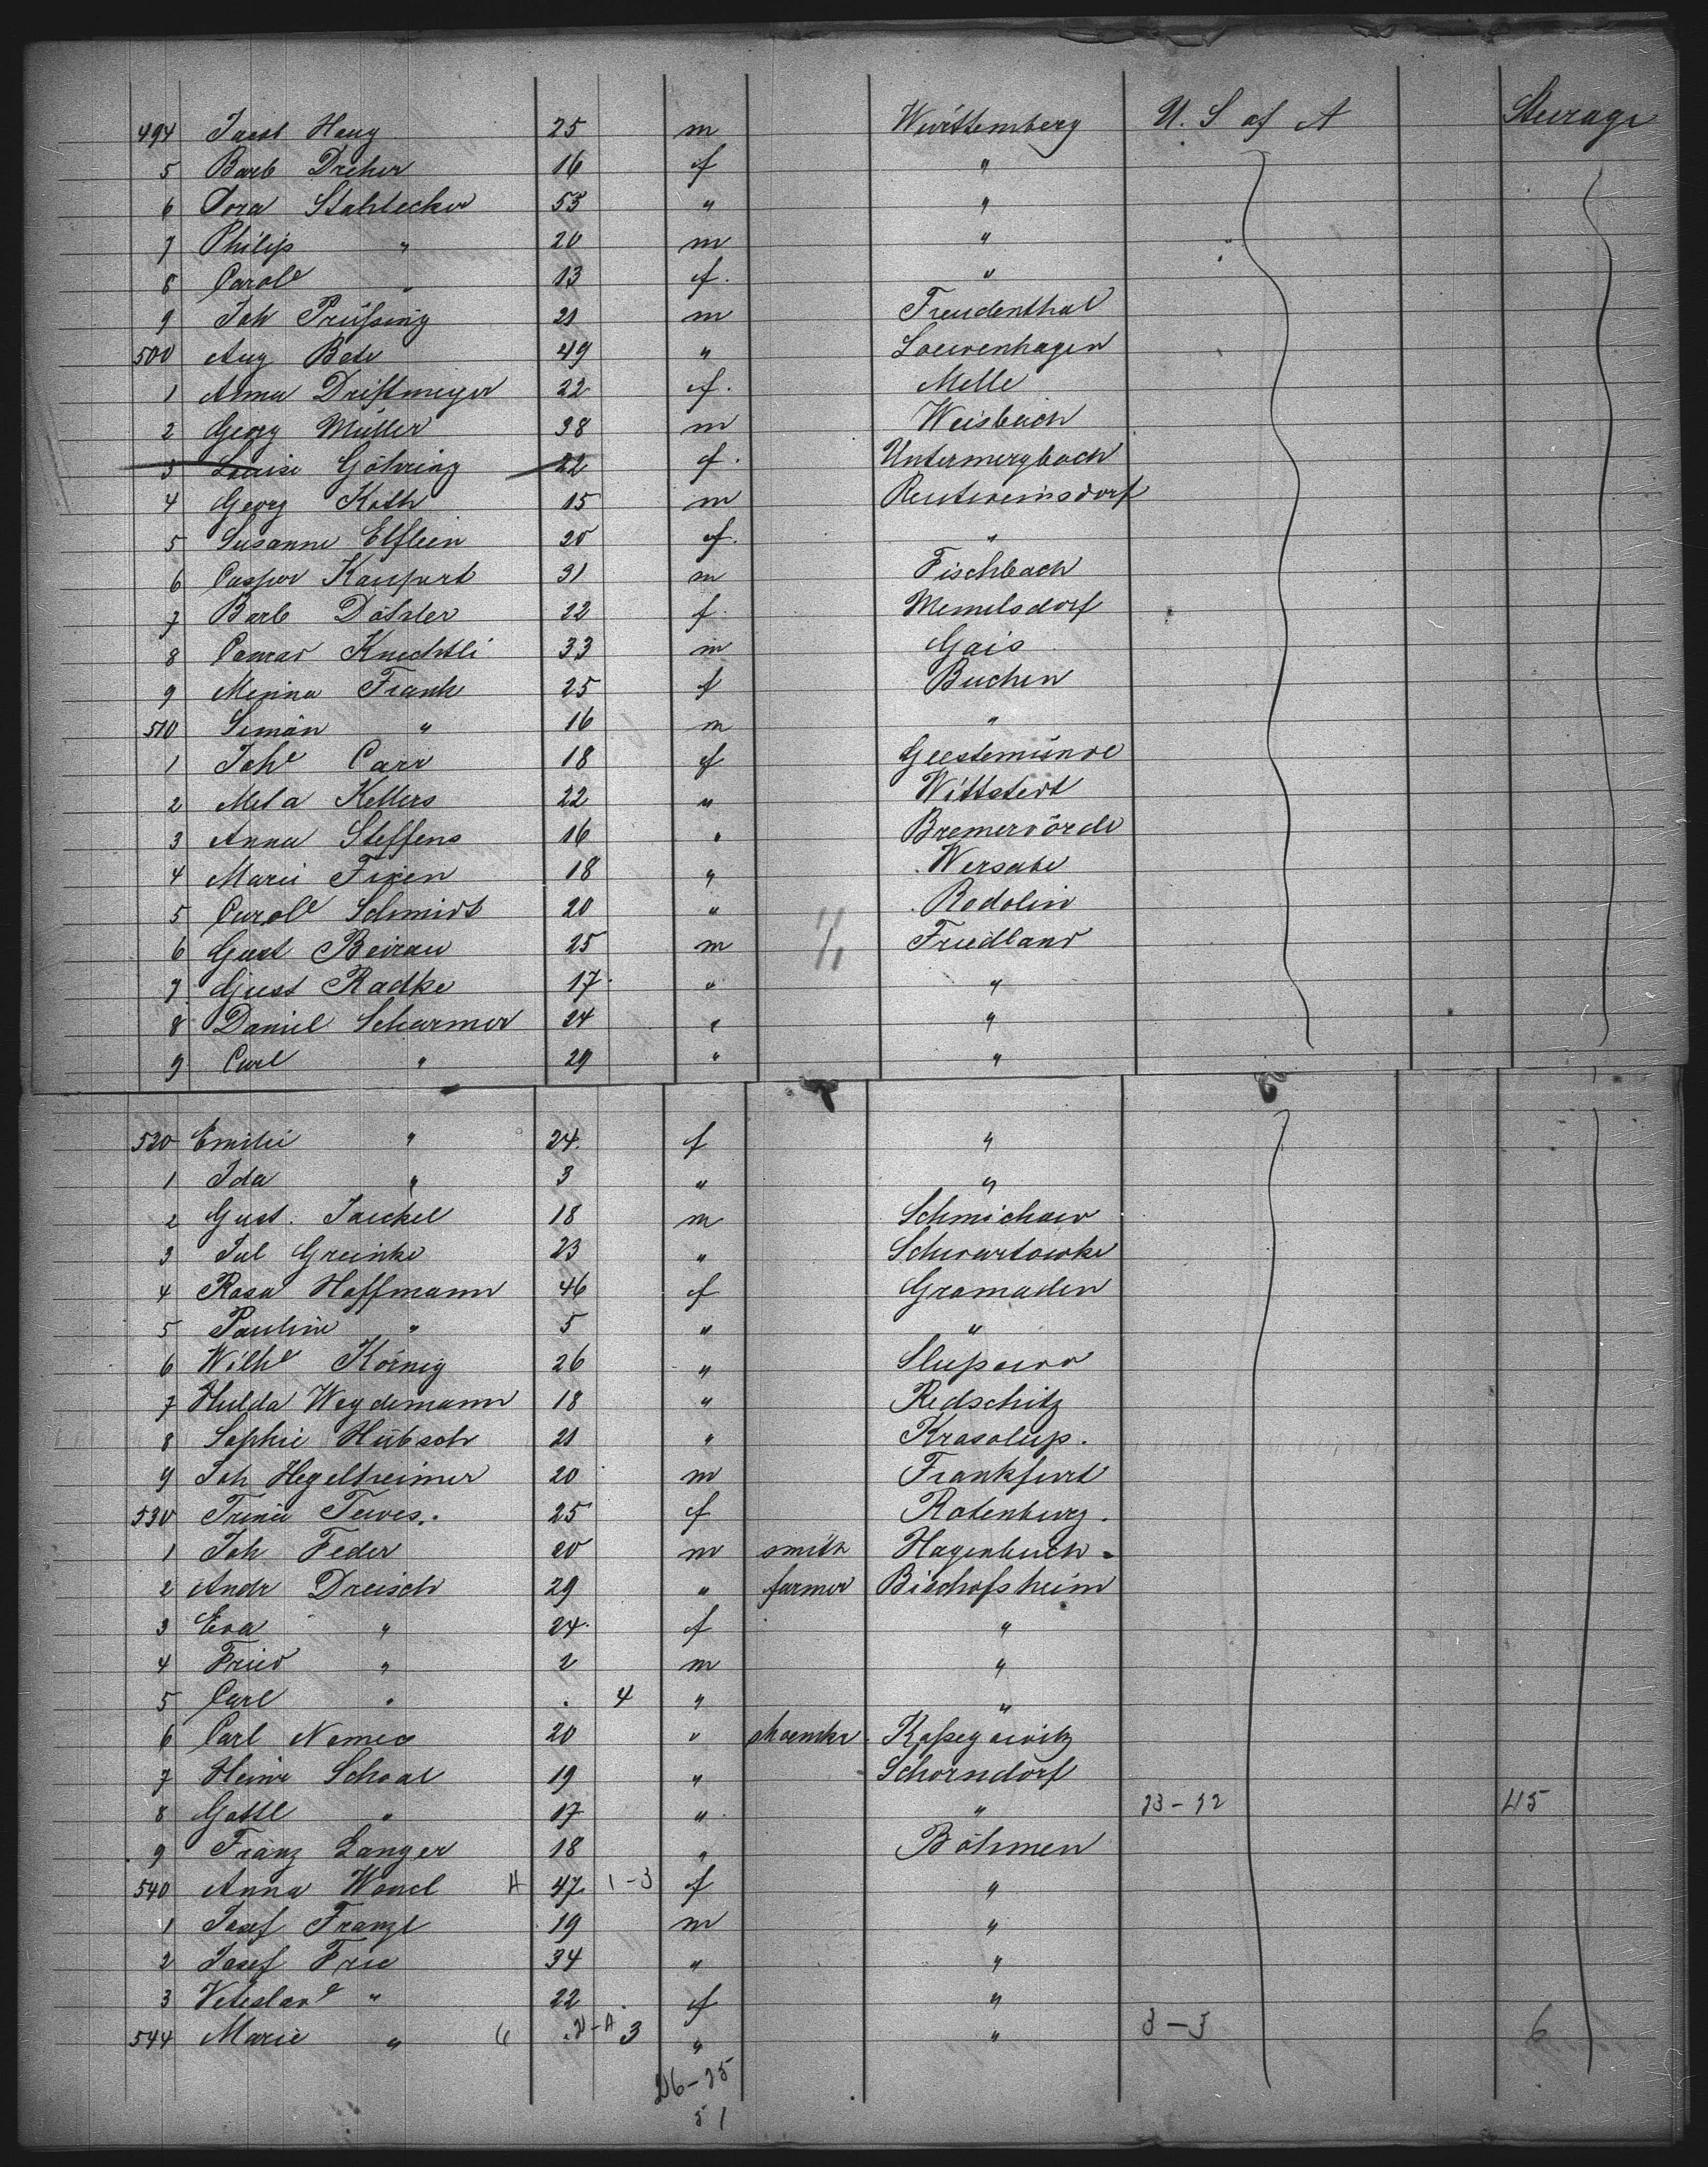 494 Jacob Haug 25 m Württemberg U. S of A Steerage
5 Barb Dreher 16 f "
6 Dora Stahlecker 53 " "
7 Philip " 20 m "
8 Carole " 13 f. "
9 Joh Prüßing 21 m Freudenthal
500 Aug Bode 49 " Loewenhagen
1 Anna Driftmeyer 22 f. Melle
2 Georg Müller 38 m Weisbach
3 Louise Göhring 22 f. Untermerzbach
4 Georg Koth 15 m Rentweinsdorf
5 Susanne Elflein 20 f. "
6 Caspar Kaupert 31 m Fischbach
7 Barb Döhler 22 f. Memelsdorf
8 Conrad Knechtli 33 m Gais
9 Minna Frank 25 f Buchen
510 Simon " 16 m "
1 Johe Carr 18 f Geestemünde
2 Meta Kellers 22 " Wittstedt
3 Anna Steffens 16 " Bremervörde
4 Marie Fixen 18 " Wersabe
5 Carole Schmidt 20 " Rodolin
6 Gust Beirau 25 m Friedland
7 Gust Radke 17 " "
8 Daniel Scharmer 24 " "
9 Carl " 29 " "
520 Emilie " 24 f "
1 Ida " 3 " "
2 Gust. Jaeckel 18 m Schmichow
3 Jul Greinke 23 " Schwartowke
4 Rosa Hoffmann 46 f Gramaden
5 Pauline " 5 " "
6 Wilhe Körnig 26 " Slupowo
7 Hulda Weydemann 18 " Redschitz
8 Sophie Hübsch 21 " Krasolup.
9 Joh Hegelheimer 20 m Frankfurt
530 Trina Tewes. 25 f Rotenburg.
1 Joh Feder 20 m smith Hagenbuch
2 Andr Dreisch 29 " farmer Bischofsheim
3 Eva " 24 f "
4 Fried " 2 m "
5 Carl " . 4 " "
6 Carl Nemec 20 " shoemkr Kaßegowitz
7 Heinr Schaal 19 " Schorndorf
8 Gottl " 17 " " 23-22 45
9 Franz Langer 18 " Böhmen
540 Anna Wonel A 47 1-3 f "
1 Josef Franzl 19 m "
2 Josef Fric 34 " "
3 Veteslave " 22 f "
544 Marie " 6 . 21-A 3 " " 3-3 6
26-25
51